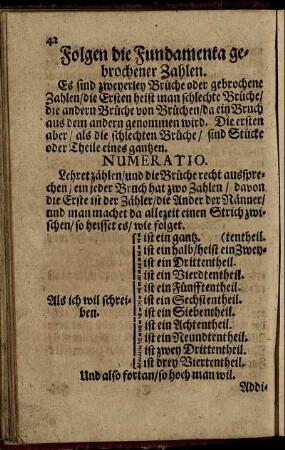 42
Folgen die Fundamenta ge-
brochener Zahlen.
Es sind zweyerley Brüche oder gebrochene
Zahlen/die Ersten heist man schlechte Brüche/
die andern Brüche von Brüchen/da ein Bruch
aus dem andern genommen wird. Die ersten
aber/ als die schlechten Brüche/ sind Stücke
oder Theile eines gantzen.
NUMERATIO.
Lehret zählen/und die Brüche recht ausspre-
chen/ ein jeder Bruch hat zwo Zahlen/ davon
die Erste ist der Zähler/die Ander der Nänner/
und man machet da allezeit einen Strich zwi-
schen/so heisset es/ wie folget.
ist ein gantz. (tentheil.
ist ein halb/heist ein Zwey-
ist ein Drittentheil.
ist ein Vierdtentheil.
ist ein Fünfftentheil.
Als ich wil schrei-
ben.
ist ein Sechstentheil.
ist ein Siebentheil.
ist ein Achtentheil.
ist ein Neundtentheil.
ist zwey Drittentheil.
ist drey Viertentheil.
Und also fortan/so hoch man wil.
Addi-